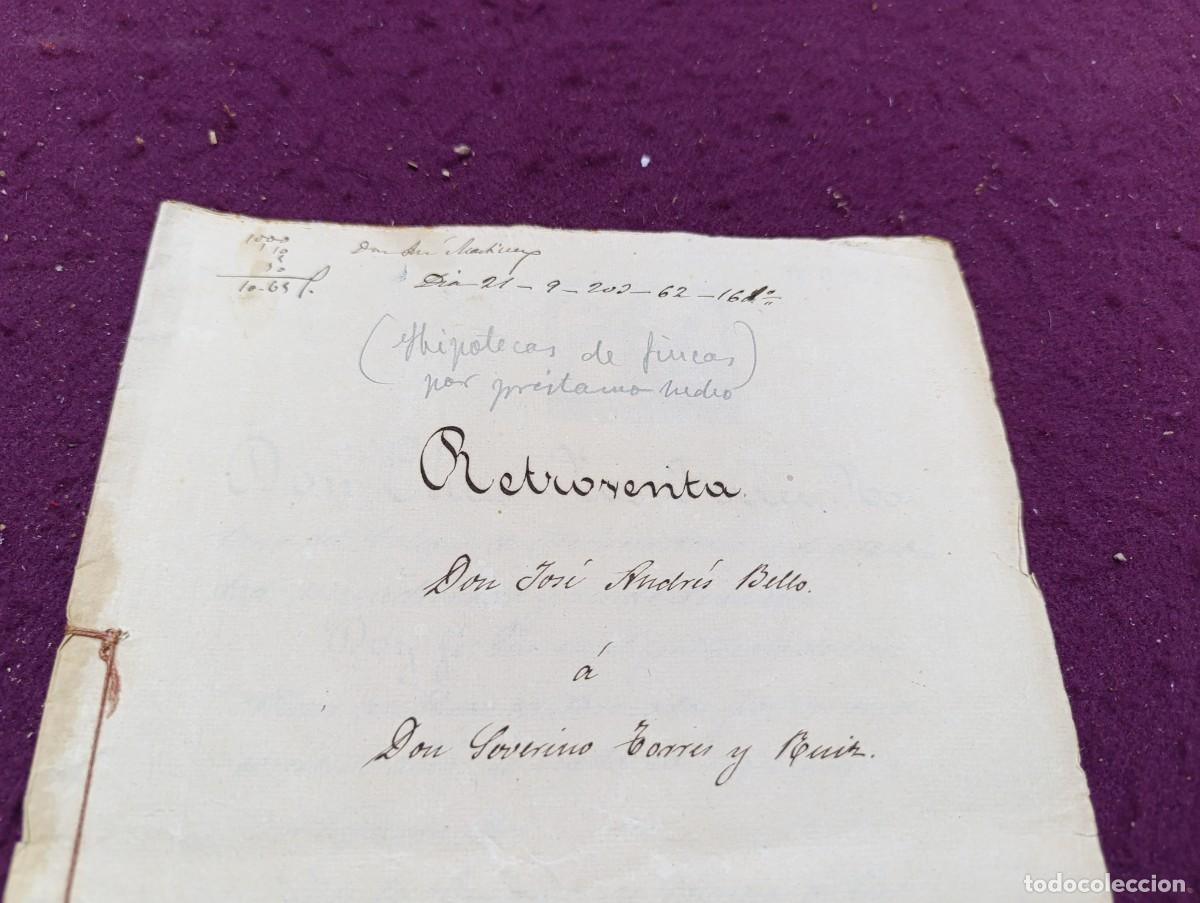 1000
10
8
50
10-68
Don José Martinez
Dia 21 - 9 - 203 - 62 - 16
(Hipotecas de fincas)
por préstamo
Retroventa.
Don José Andrés Bello.
á
Don Severino Torres y Ruiz.
todocoleccion